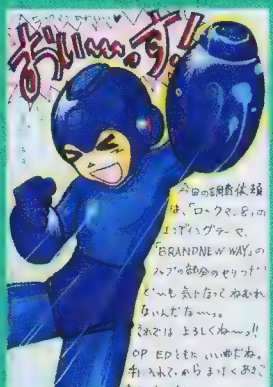 おい〜〜〜っす!!
今回の調査依頼
は、「ロックマン8」の
エンディングテーマ
「BRANDNEW WAY」の
ラップの部分のセリフ!!
ど〜も気になってねむれ
ないんだな〜っ。
それでは よろしくね〜っ!!
OP EDともに いい曲だね。
手に入れてからまったくあきさ